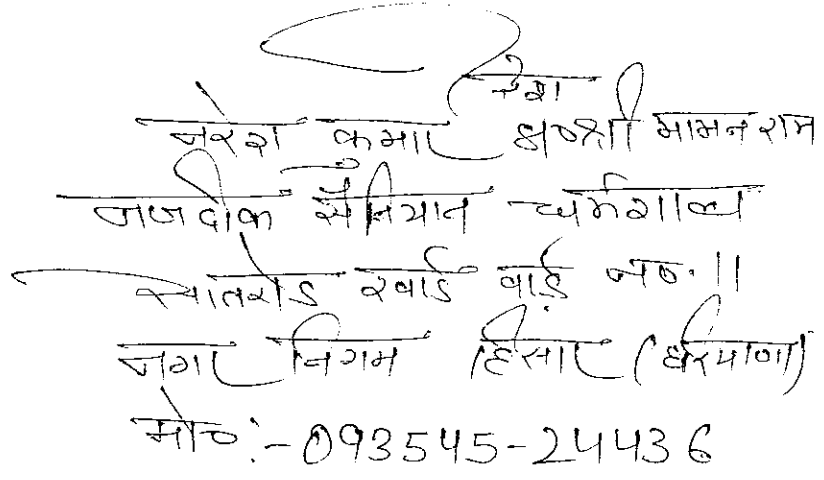 नरेश
नरेश कुमार S/०श्री मामन राम
नजदीक सैनियान धर्मशाला
सातरोड खुर्द वार्ड न०.11
नगर निगम हिसार (हरियाणा)
मो०:-093545-24436